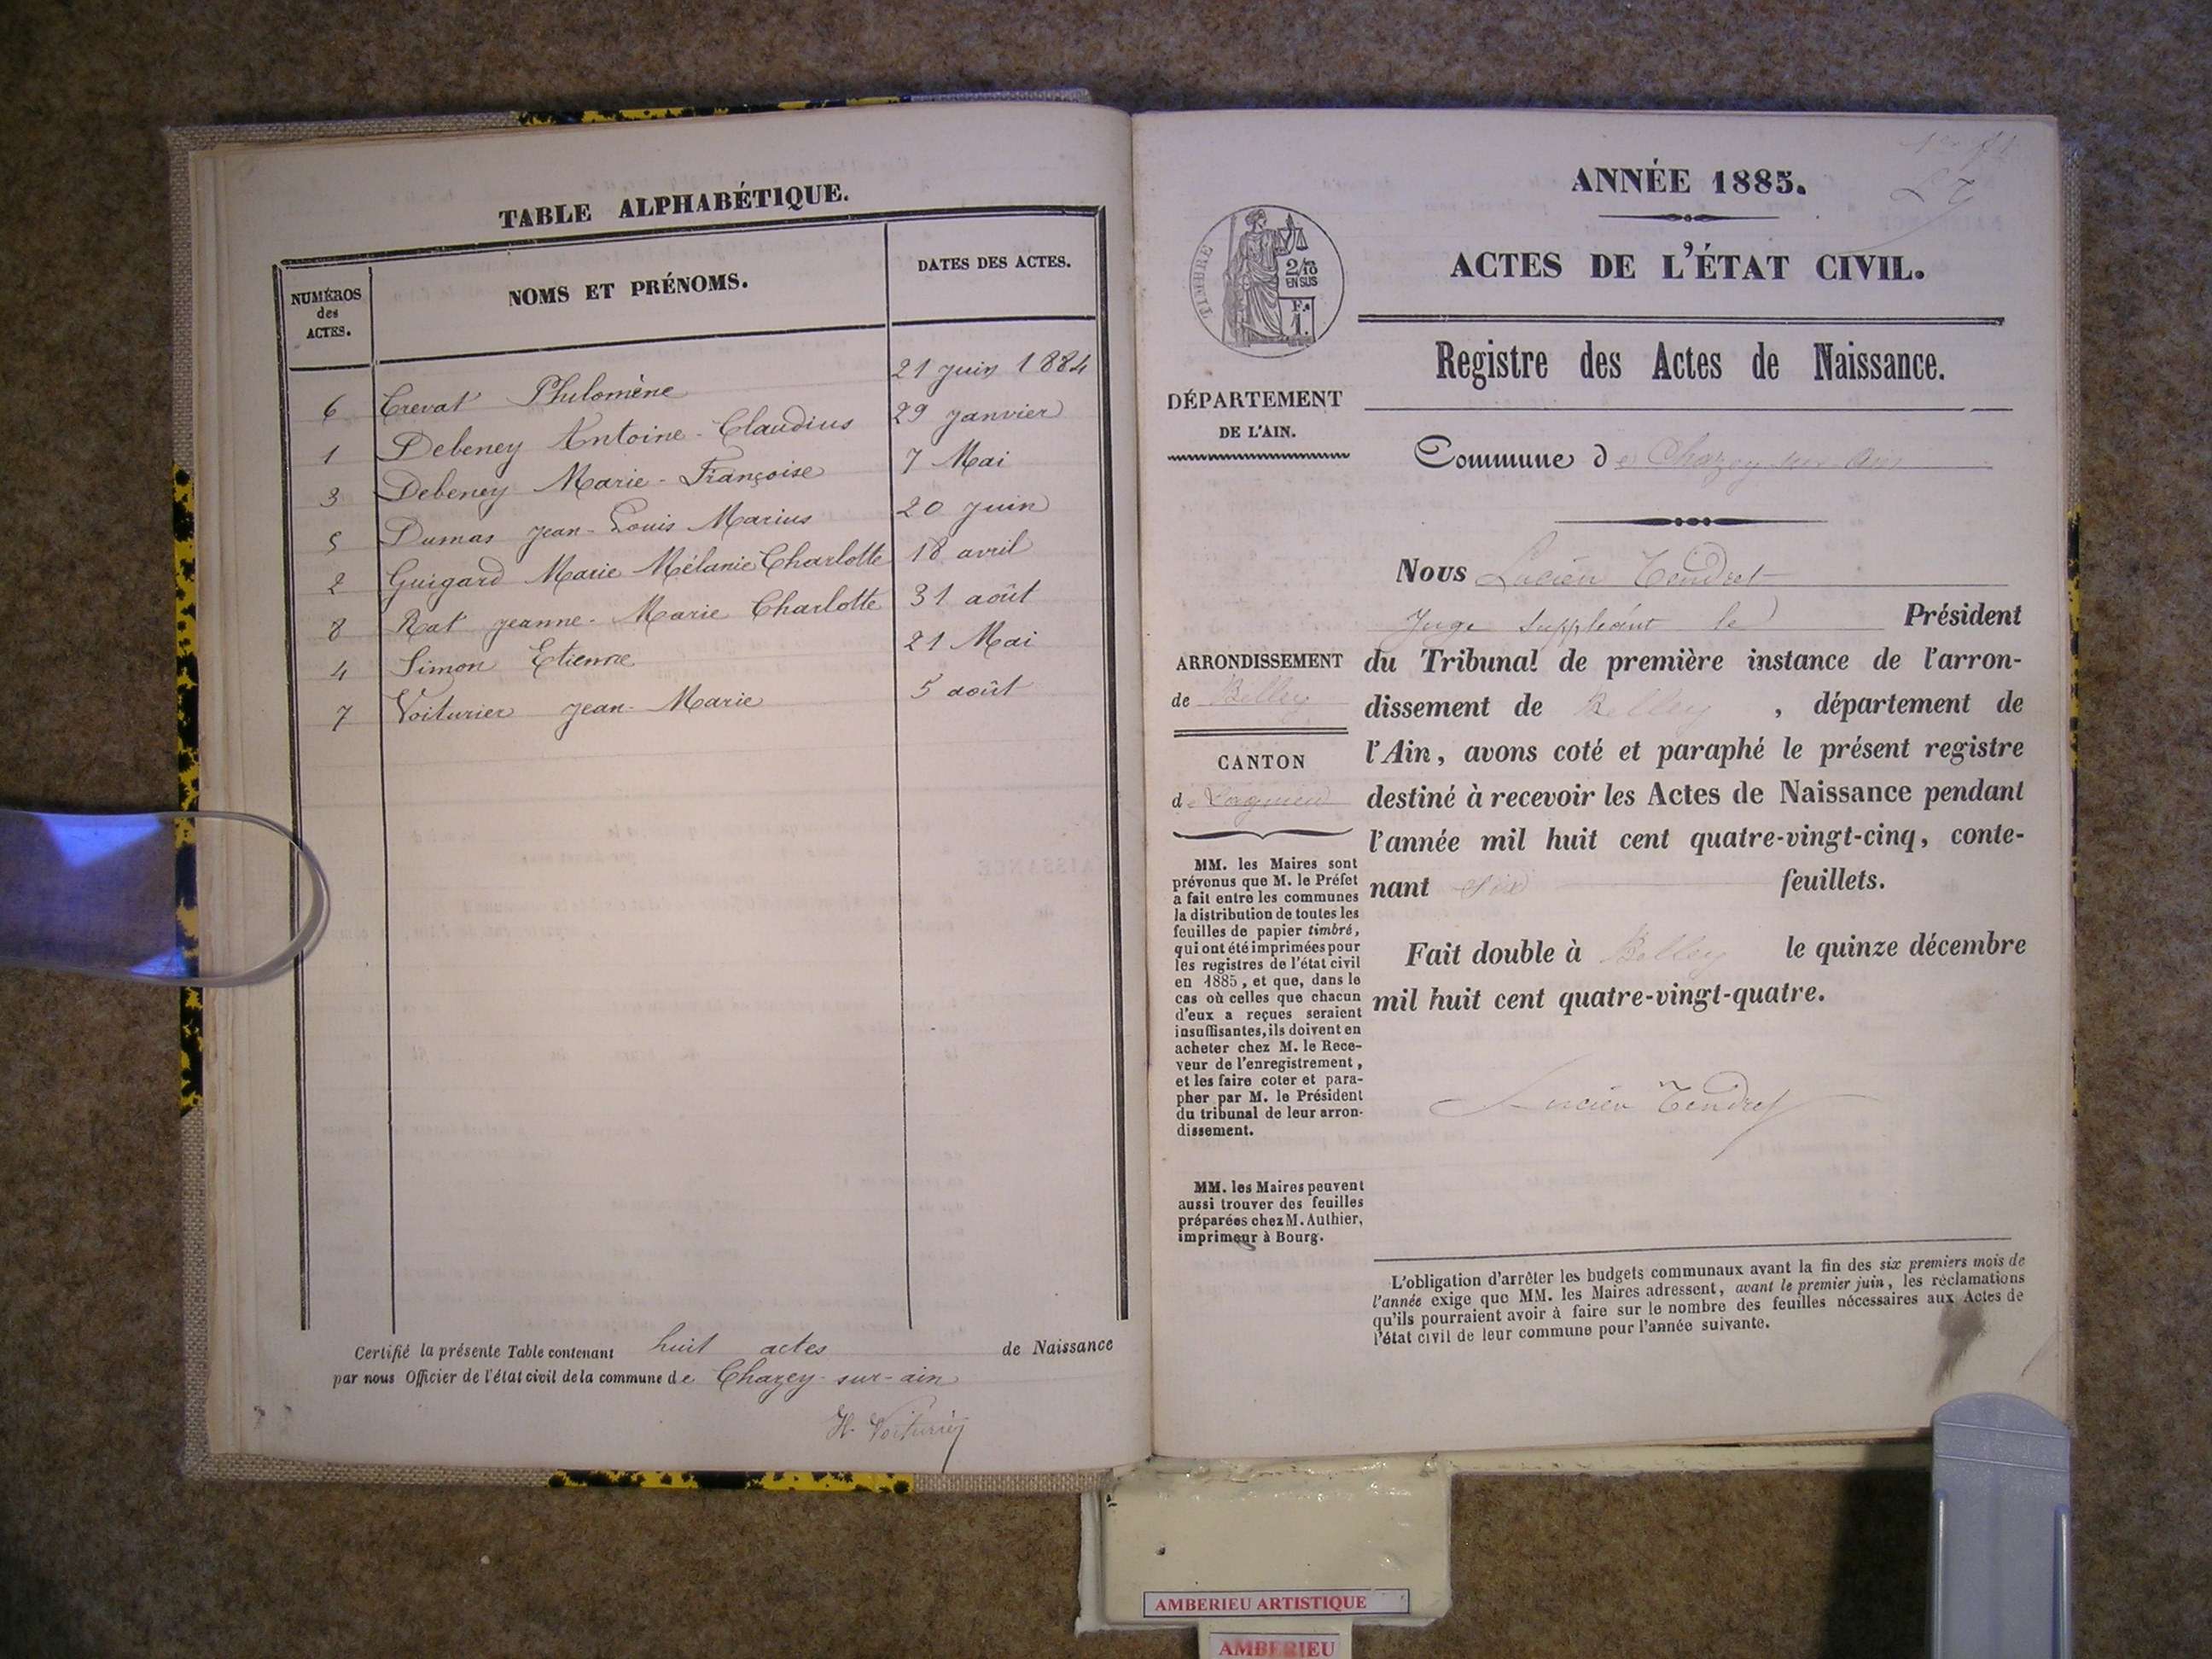 TABLE ALPHABÉTIQUE.
NUMÉROS
des
ACTES.
NOMS ET PRÉNOMS.
DATES DES ACTES.
6 Crevat Philomène 21 juin 1884
1 Debeney Antoine-Claudius 29 janvier
3 Debeney Marie-Françoise 7 Mai
5 Dumas jean-Louis Marius 20 juin
2 Guigard Marie Mélanie Charlotte 18 avril
8 Rat jeanne-Marie Charlotte 31 août
4 Simon Etienne 21 Mai
7 Voiturier jean-Marie 5 août
Certifié la présente Table contenant huit actes de Naissance
par nous Officier de l'état civil de la commune de Chazey-sur-ain
ANNÉE 1885.
ACTES DE L'ÉTAT CIVIL.
TIMBRE
2/10
EN SUS
F.
1.
Registre des Actes de Naissance.
DÉPARTEMENT
DE L'AIN.
Commune de Chazey-sur-Ain
Nous Lucien Tendret
Juge suppléant le Président
du Tribunal de première instance de l'arron-
dissement de Belley, département de
l'Ain, avons coté et paraphé le présent registre
destiné à recevoir les Actes de Naissance pendant
l'année mil huit cent quatre-vingt-cinq, conte-
nant six feuillets.
Fait double à Belley le quinze décembre
mil huit cent quatre-vingt-quatre.
Lucien Tendret
ARRONDISSEMENT
de Belley
CANTON
de Lagnieu
MM. les Maires sont
prévenus que M. le Préfet
a fait entre les communes
la distribution de toutes les
feuilles de papier timbré,
qui ont été imprimées pour
les registres de l'état civil
en 1885, et que, dans le
cas où celles que chacun
d'eux a reçues seraient
insuffisantes, ils doivent en
acheter chez M. le Rece-
veur de l'enregistrement,
et les faire coter et para-
pher par M. le Président
du tribunal de leur arron-
dissement.
MM. les Maires peuvent
aussi trouver des feuilles
préparées chez M. Authier,
imprimeur à Bourg.
L'obligation d'arrêter les budgets communaux avant la fin des six premiers mois de
l'année exige que MM. les Maires adressent, avant le premier juin, les réclamations
qu'ils pourraient avoir à faire sur le nombre des feuilles nécessaires aux Actes de
l'état civil de leur commune pour l'année suivante.
AMBERIEU ARTISTIQUE
AMBERIEU